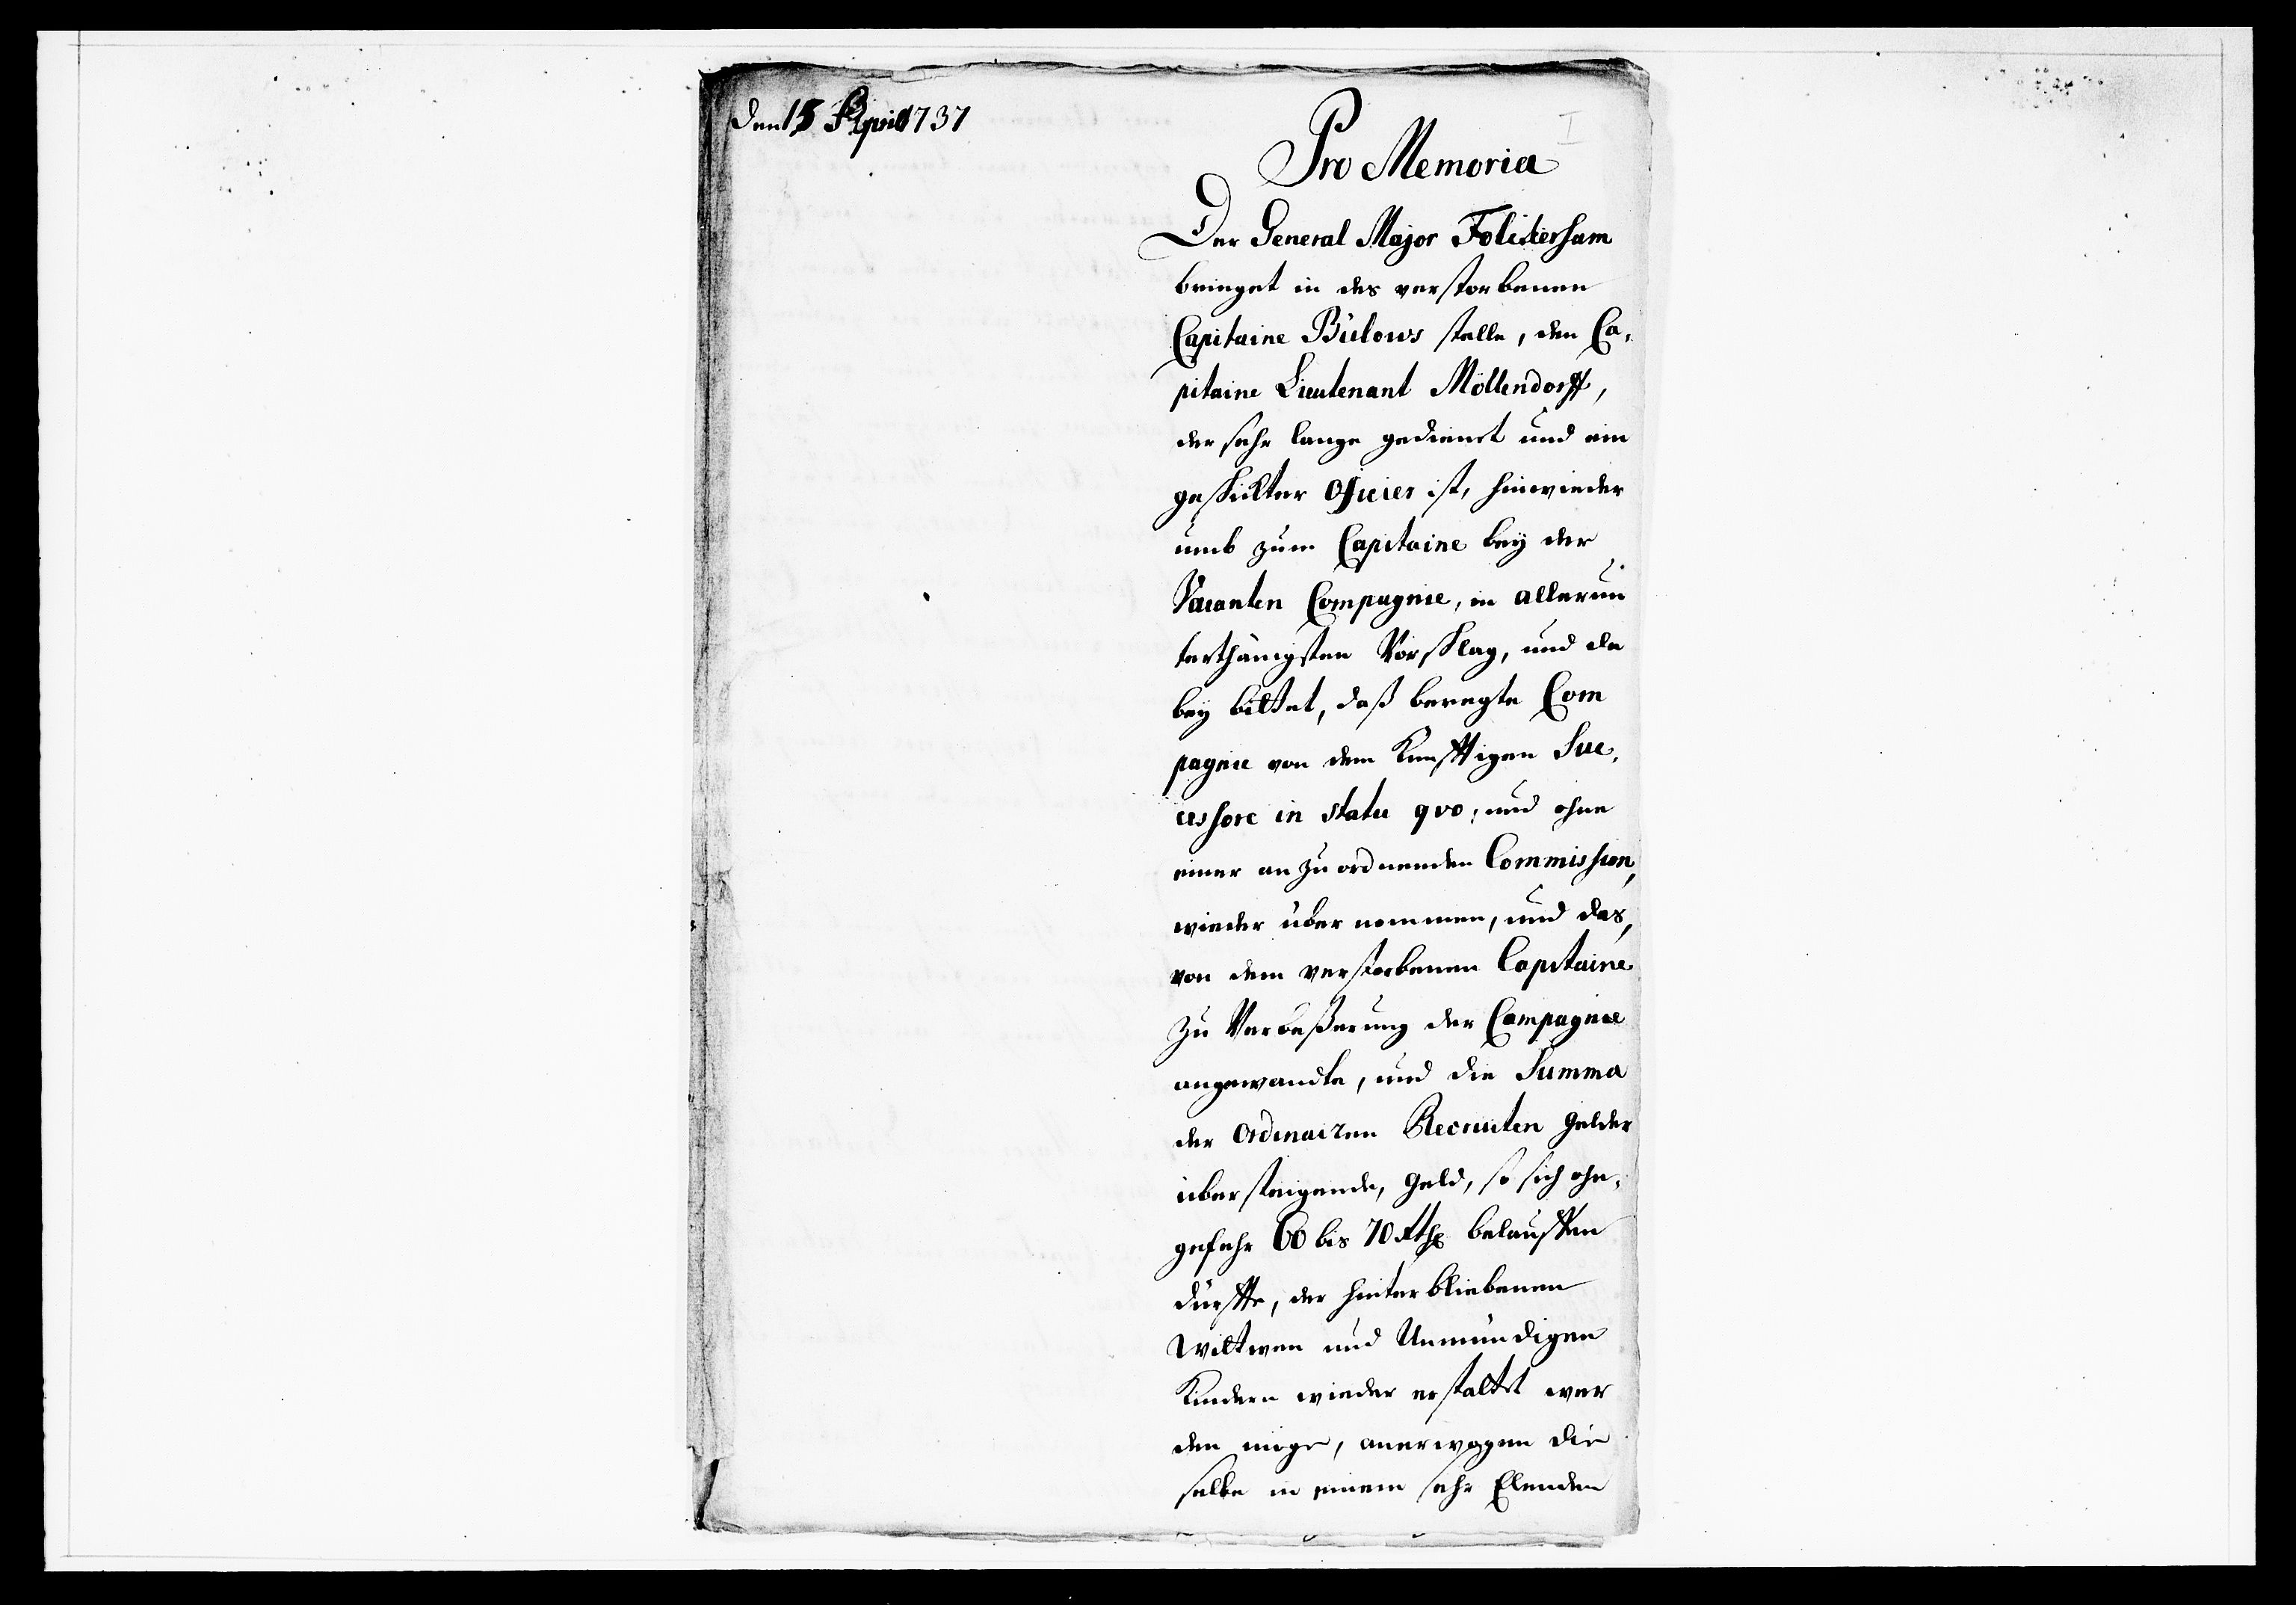 den 15 April 1737
I
Pro Memoria
Der General Major Folckersam
bringet in des verstorbenen
Capitaine Bülows stelle, den Ca-
pitaine Lieutenant Möllendorff,
der sehr lange gedienet und ein
geschickter Officier ist, hinwieder
umb zum Capitaine bey der
Vacanten Compagnie, in allerun
terthänigsten Vorschlag, und da
bey bittet, daß beregte Com
pagnie von dem Künfftigen Suc-
cessore in statu qvo, und ohne
einer anzuordnenden Commission,
wieder übernommen, und das,
von dem verstorbenen Capitaine
zu Verbeßerung der Compagnie
angewandte, und die Summa
der Ordinairen Recruten gelder
übersteigende, geld, so sich ohn-
gefehr 60 bis 70 Rthl belauffen
dürffte, der hinterbliebenen
Wittwen und Unmündigen
Kindern wieder erstattet wer
den möge, anerwogen die
selbe in einem sehr Elenden